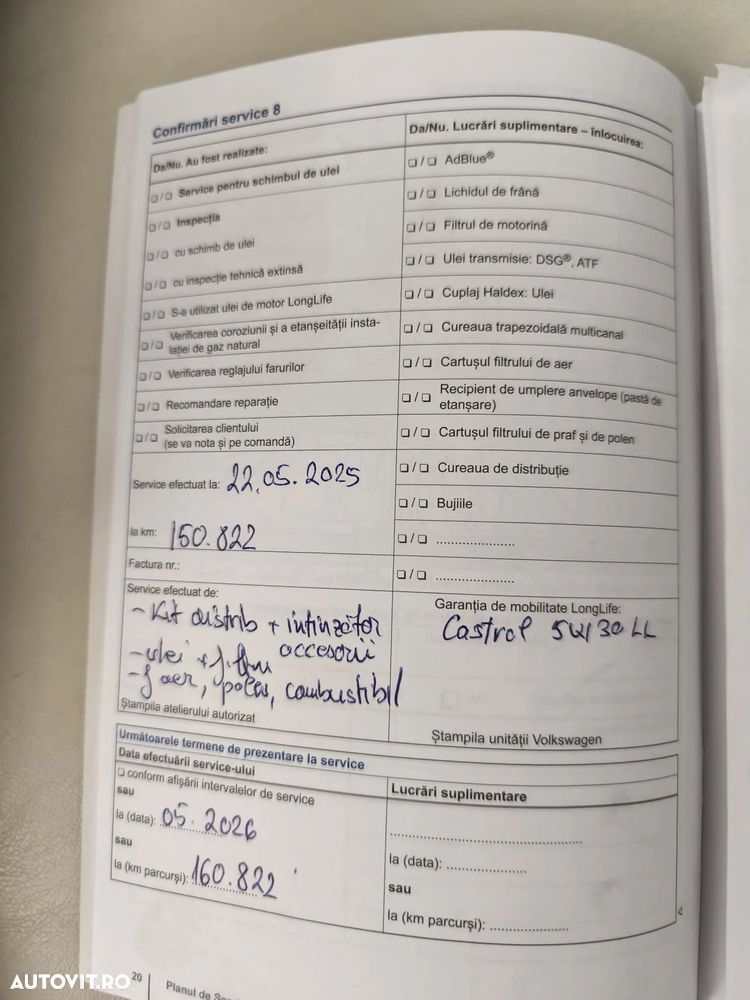 Confirmări service 8
Da/Nu. Au fost realizate:
❏ / ❏ Service pentru schimbul de ulei
❏ / ❏ Inspecția
❏ / ❏ cu schimb de ulei
❏ / ❏ cu inspecție tehnică extinsă
❏ / ❏ S-a utilizat ulei de motor LongLife
❏ / ❏ Verificarea coroziunii și a etanșeității insta-
lației de gaz natural
❏ / ❏ Verificarea reglajului farurilor
❏ / ❏ Recomandare reparație
❏ / ❏ Solicitarea clientului
(se va nota și pe comandă)
Service efectuat la: 22.05.2025
la km: 150.822
Factura nr.:
Service efectuat de:
- Kit distrib + intinzător
accesorii
- ulei +
- f aer, polen, combustibil
Ștampila atelierului autorizat
Da/Nu. Lucrări suplimentare – înlocuirea:
❏ / ❏ AdBlue®
❏ / ❏ Lichidul de frână
❏ / ❏ Filtrul de motorină
❏ / ❏ Ulei transmisie: DSG®, ATF
❏ / ❏ Cuplaj Haldex: Ulei
❏ / ❏ Cureaua trapezoidală multicanal
❏ / ❏ Cartușul filtrului de aer
❏ / ❏ Recipient de umplere anvelope (pastă de
etanșare)
❏ / ❏ Cartușul filtrului de praf și de polen
❏ / ❏ Cureaua de distribuție
❏ / ❏ Bujiile
❏ / ❏ ......................
❏ / ❏ ......................
Garanția de mobilitate LongLife:
Castrol 5W30 LL
Ștampila unității Volkswagen
Următoarele termene de prezentare la service
Data efectuării service-ului
❏ conform afișării intervalelor de service
sau
la (data): 05.2026
sau
la (km parcurși): 160.822
Lucrări suplimentare
......................................................
la (data): ......................
sau
la (km parcurși): ......................
20
Planul de
AUTOVIT.RO